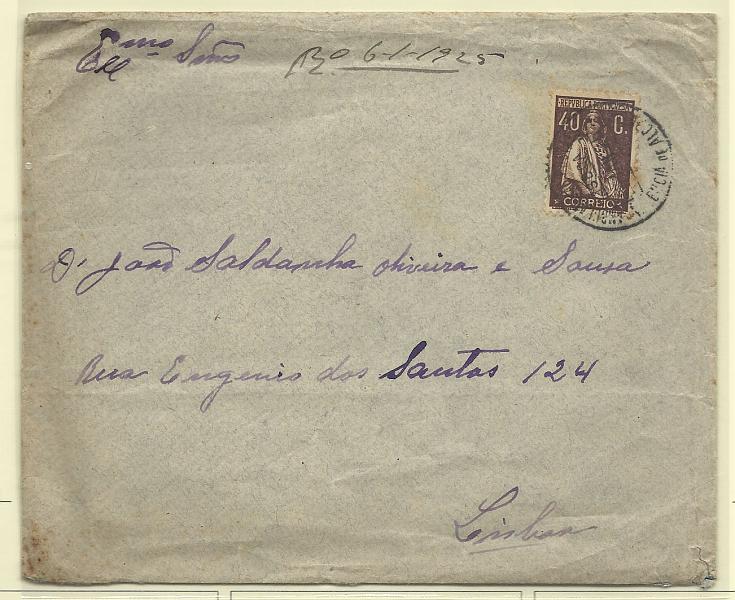 Exmo Snr
Ro 6-1-1925
REPUBLICA PORTUGUESA
40 C.
CORREIO
D. João Saldanha Oliveira e Sousa
Rua Eugenio dos Santos 124
Lisboa